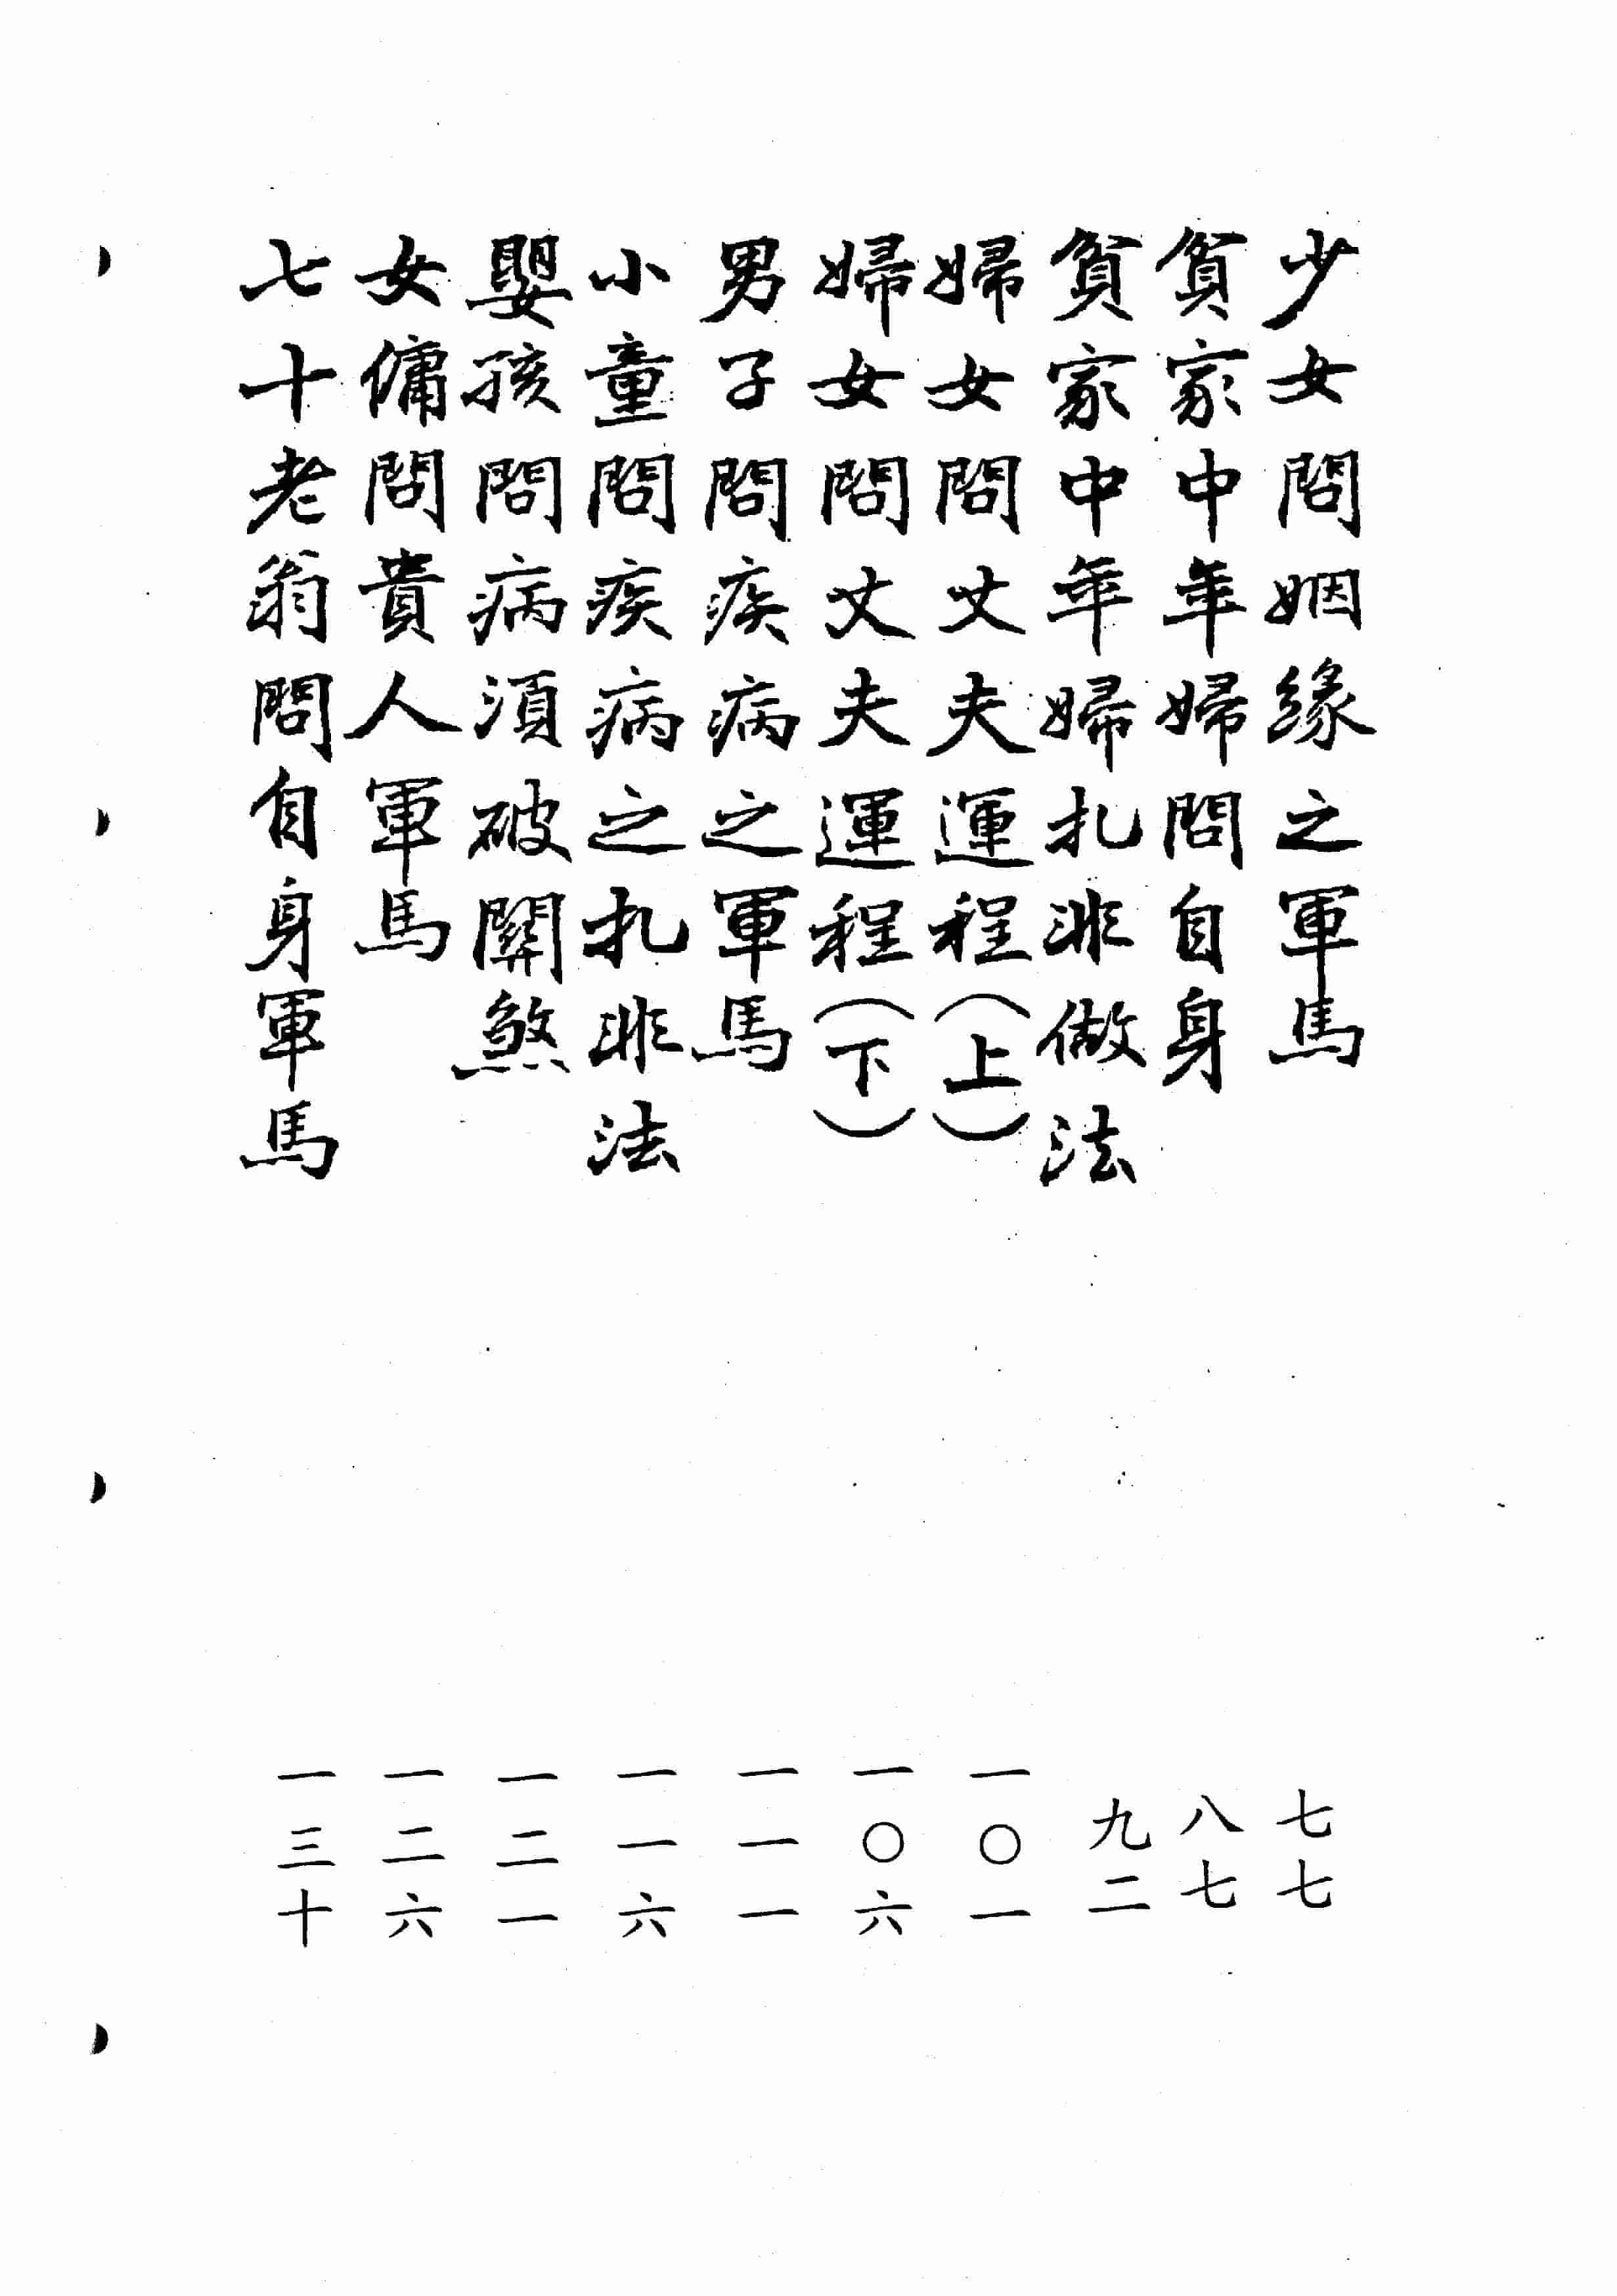 少女問姻緣之軍馬 七七
貧家中年婦問自身 八七
貧家中年婦扎非做法 九二
婦女問丈夫運程（上） 一〇一
婦女問丈夫運程（下） 一〇六
男子問疾病之軍馬 一一一
小童問疾病之扎非法 一一六
嬰孩問病須破關煞 一二一
女傭問貴人軍馬 一二六
七十老翁問自身軍馬 一三十